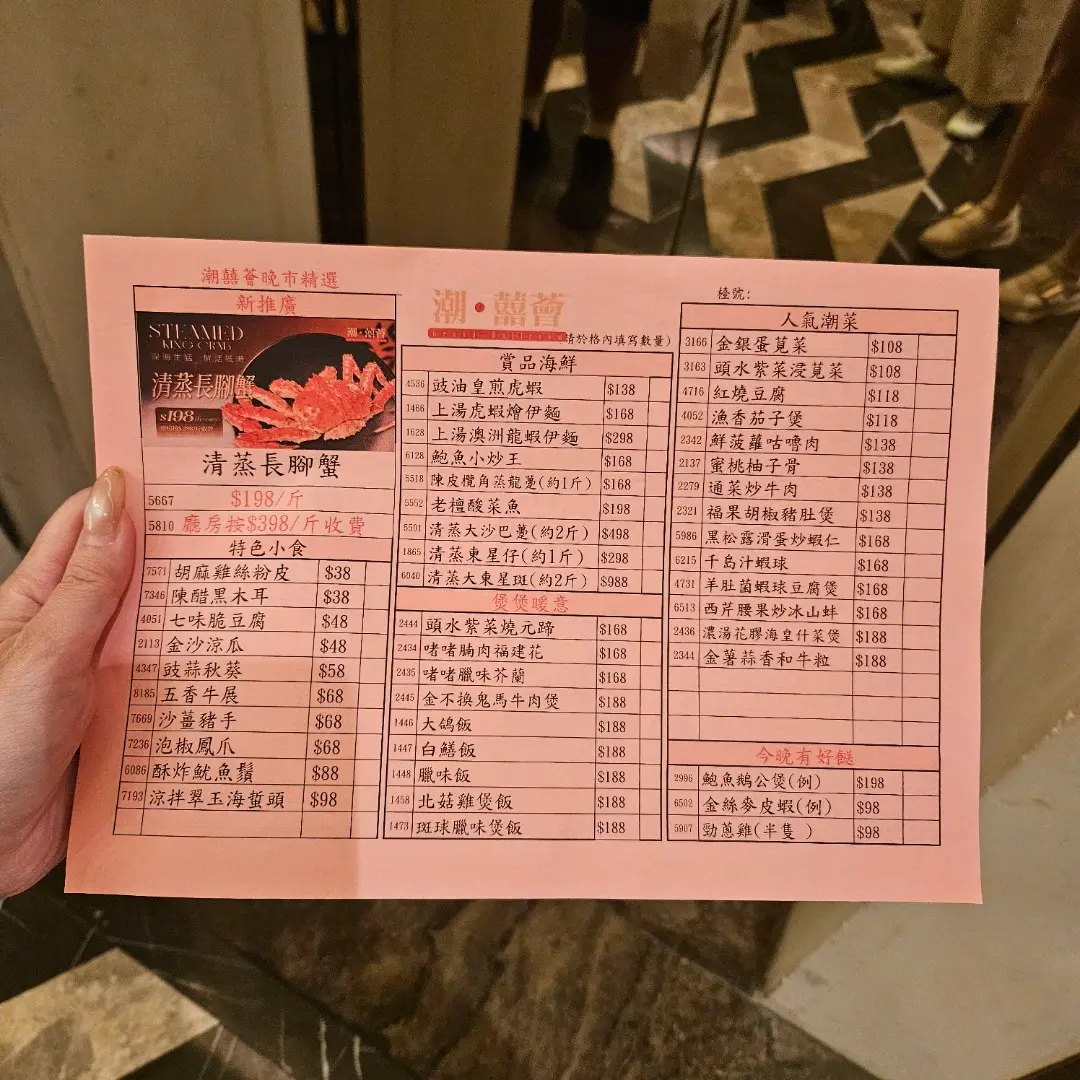 潮囍薈晚市精選
新推廣
STEAMED
KING CRAB
深海生猛 鮮活抵港
潮·囍薈
清蒸長腳蟹
$198
清蒸長腳蟹
5667 $198/斤
5810 廳房按$398/斤收費
特色小食
7571 胡麻雞絲粉皮 $38
7346 陳醋黑木耳 $38
4051 七味脆豆腐 $48
2113 金沙涼瓜 $48
4347 豉蒜秋葵 $58
8185 五香牛展 $68
7669 沙薑豬手 $68
7236 泡椒鳳爪 $68
6086 酥炸魷魚鬚 $88
7193 涼拌翠玉海蜇頭 $98
潮·囍薈
(請於格內填寫數量)
賞品海鮮
4536 豉油皇煎虎蝦 $138
1466 上湯虎蝦燴伊麵 $168
1628 上湯澳洲龍蝦伊麵 $298
6128 鮑魚小炒王 $168
5518 陳皮欖角蒸龍躉(約1斤) $168
5552 老檀酸菜魚 $198
5501 清蒸大沙巴躉(約2斤) $498
1865 清蒸東星仔(約1斤) $298
6040 清蒸大東星斑(約2斤) $988
煲煲暖意
2444 頭水紫菜燒元蹄 $168
2434 啫啫腩肉福建花 $168
2435 啫啫臘味芥蘭 $168
2445 金不換鬼馬牛肉煲 $188
1446 大鴿飯 $188
1447 白鱔飯 $188
1448 臘味飯 $188
1458 北菇雞煲飯 $188
1473 斑球臘味煲飯 $188
檯號:
人氣潮菜
3166 金銀蛋莧菜 $108
3163 頭水紫菜浸莧菜 $108
4716 紅燒豆腐 $118
4052 漁香茄子煲 $118
2342 鮮菠蘿咕嚕肉 $138
2137 蜜桃柚子骨 $138
2279 通菜炒牛肉 $138
2321 福果胡椒豬肚煲 $138
5986 黑松露滑蛋炒蝦仁 $168
6215 千島汁蝦球 $168
4731 羊肚菌蝦球豆腐煲 $168
6513 西芹腰果炒冰山蚌 $168
2436 濃湯花膠海皇什菜煲 $188
2344 金薯蒜香和牛粒 $188
今晚有好餸
2996 鮑魚鵝公煲(例) $198
6502 金絲麥皮蝦(例) $98
5907 勁蔥雞(半隻 ) $98